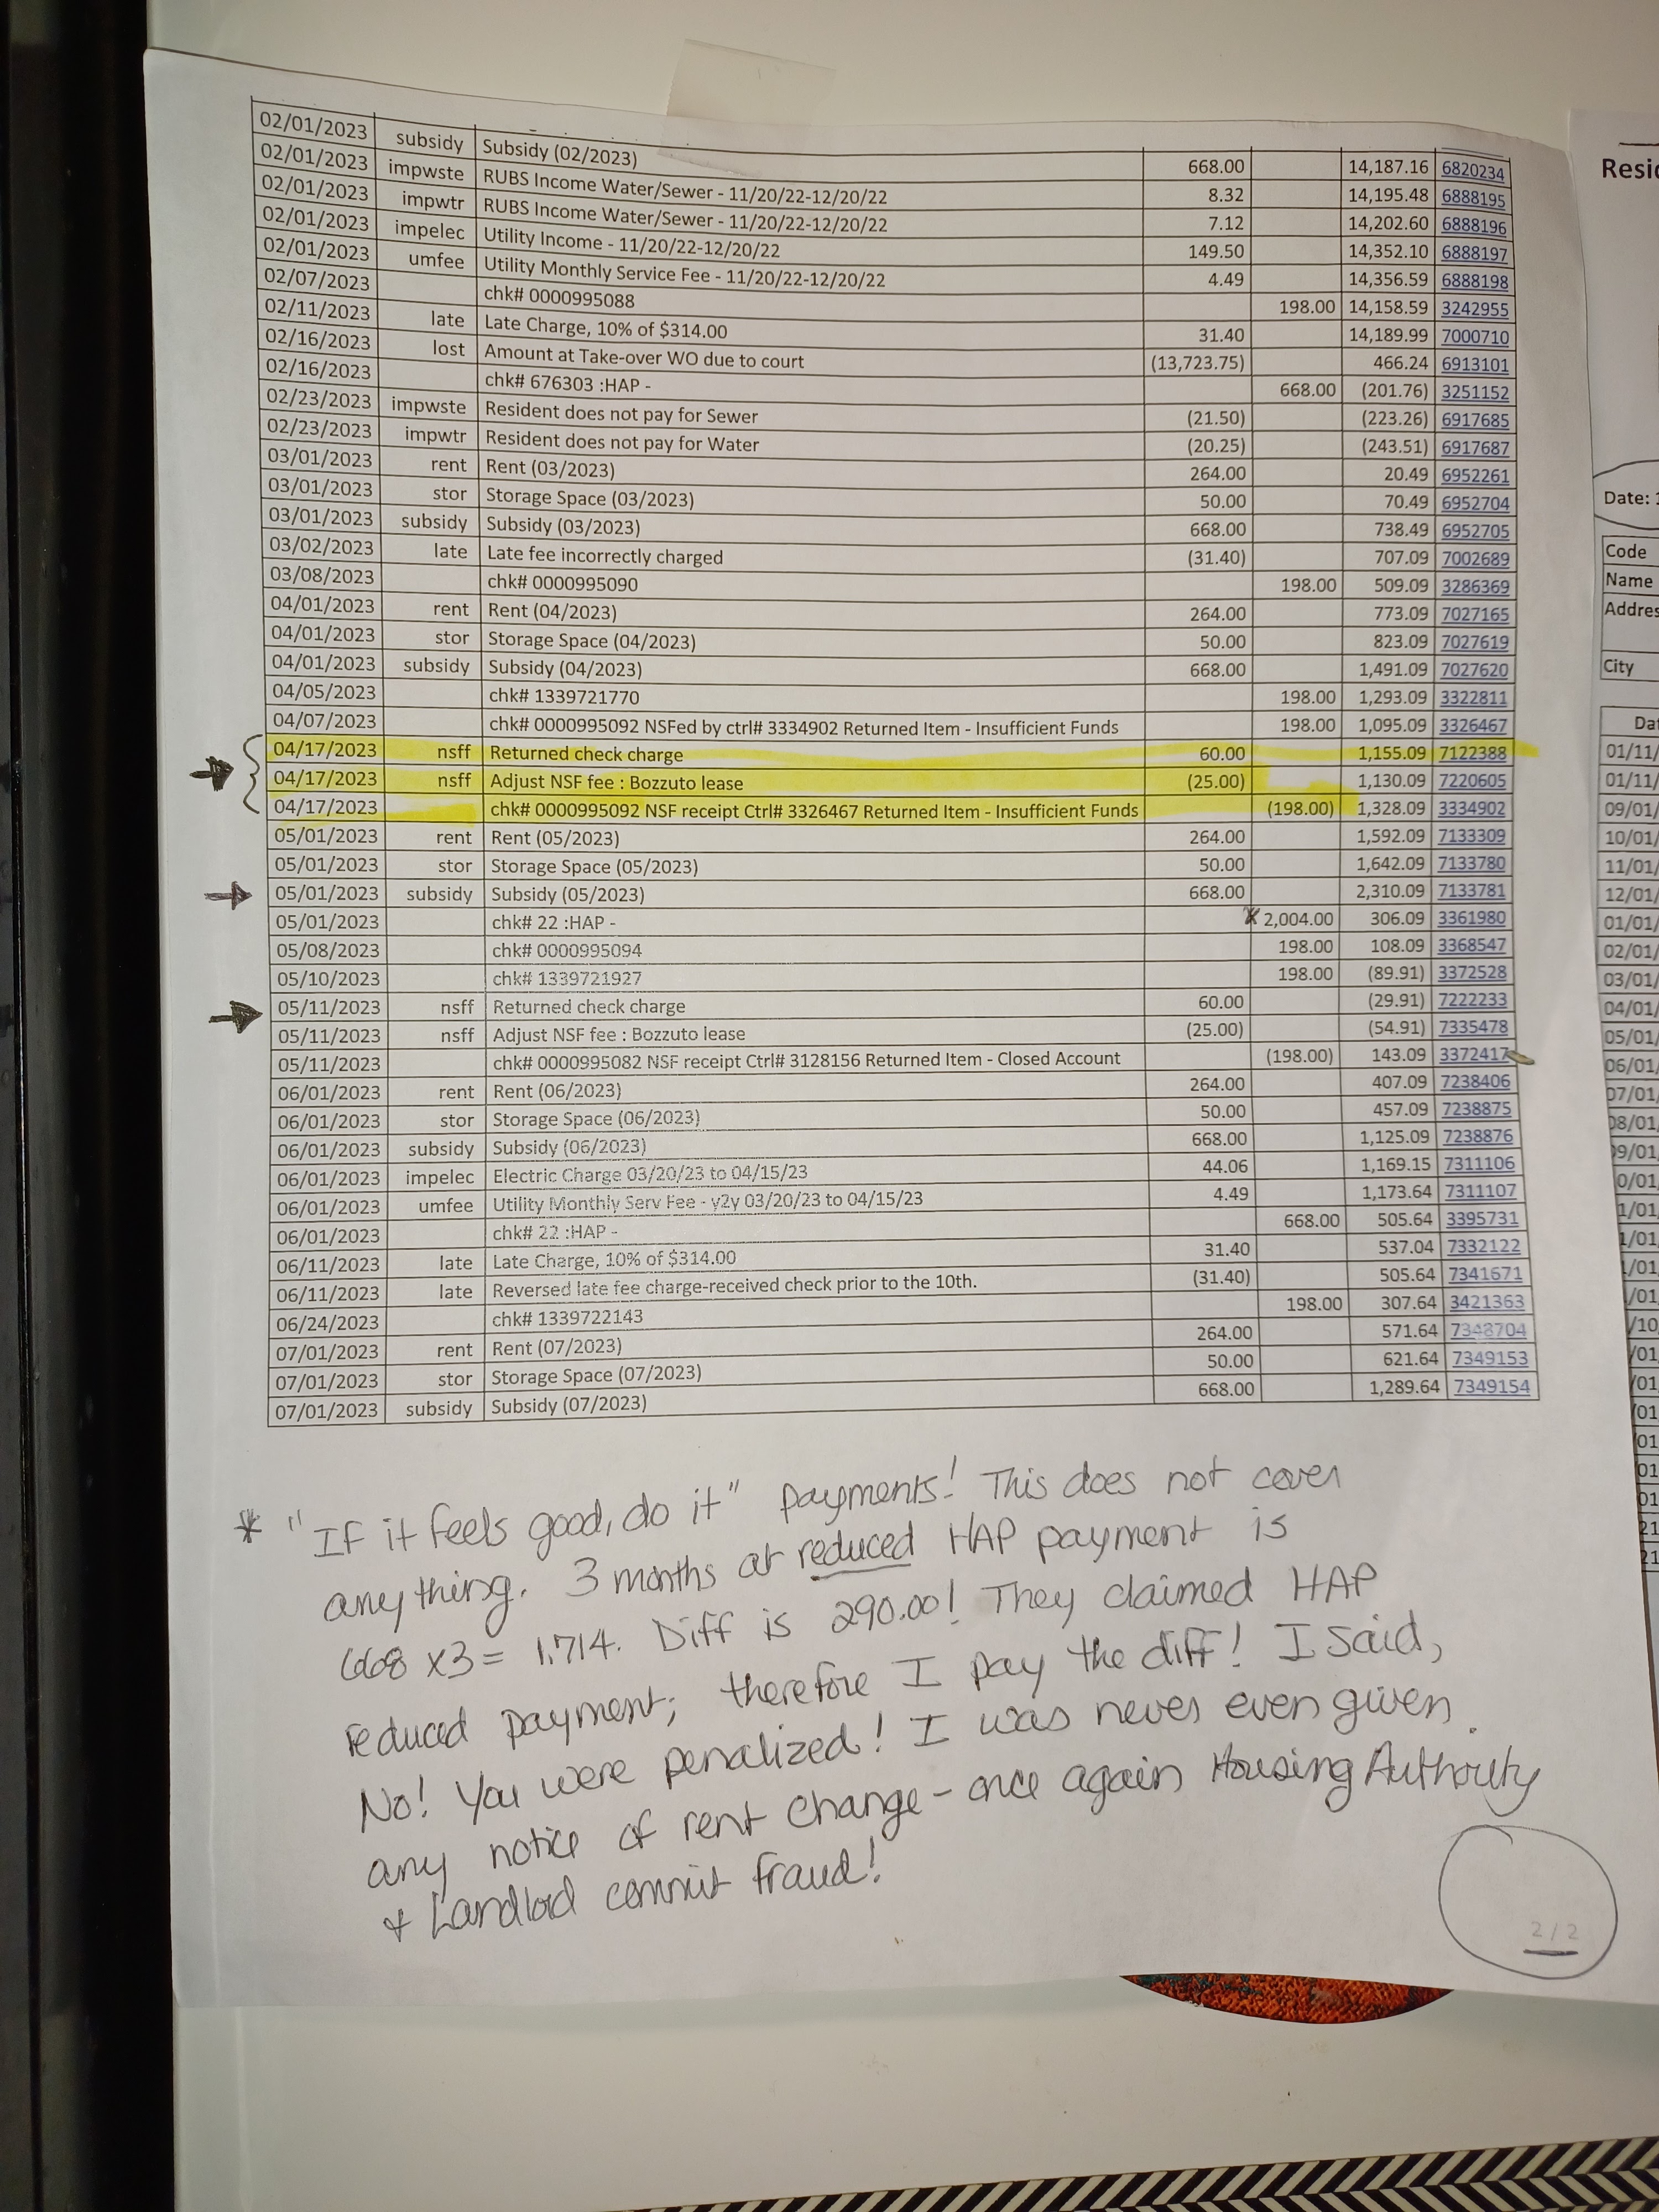 02/01/2023 subsidy Subsidy (02/2023) 668.00 14,187.16 6820234
02/01/2023 impwste RUBS Income Water/Sewer - 11/20/22-12/20/22 8.32 14,195.48 6888195
02/01/2023 impwtr RUBS Income Water/Sewer - 11/20/22-12/20/22 7.12 14,202.60 6888196
02/01/2023 impelec Utility Income - 11/20/22-12/20/22 149.50 14,352.10 6888197
02/01/2023 umfee Utility Monthly Service Fee - 11/20/22-12/20/22 4.49 14,356.59 6888198
02/07/2023 chk# 0000995088 198.00 14,158.59 3242955
02/11/2023 late Late Charge, 10% of $314.00 31.40 14,189.99 7000710
02/16/2023 lost Amount at Take-over WO due to court (13,723.75) 466.24 6913101
02/16/2023 chk# 676303 :HAP - 668.00 (201.76) 3251152
02/23/2023 impwste Resident does not pay for Sewer (21.50) (223.26) 6917685
02/23/2023 impwtr Resident does not pay for Water (20.25) (243.51) 6917687
03/01/2023 rent Rent (03/2023) 264.00 20.49 6952261
03/01/2023 stor Storage Space (03/2023) 50.00 70.49 6952704
03/01/2023 subsidy Subsidy (03/2023) 668.00 738.49 6952705
03/02/2023 late Late fee incorrectly charged (31.40) 707.09 7002689
03/08/2023 chk# 0000995090 198.00 509.09 3286369
04/01/2023 rent Rent (04/2023) 264.00 773.09 7027165
04/01/2023 stor Storage Space (04/2023) 50.00 823.09 7027619
04/01/2023 subsidy Subsidy (04/2023) 668.00 1,491.09 7027620
04/05/2023 chk# 1339721770 198.00 1,293.09 3322811
04/07/2023 chk# 0000995092 NSFed by ctrl# 3334902 Returned Item - Insufficient Funds 198.00 1,095.09 3326467
04/17/2023 nsff Returned check charge 60.00 1,155.09 7122388
04/17/2023 nsff Adjust NSF fee : Bozzuto lease (25.00) 1,130.09 7220605
04/17/2023 chk# 0000995092 NSF receipt Ctrl# 3326467 Returned Item - Insufficient Funds (198.00) 1,328.09 3334902
05/01/2023 rent Rent (05/2023) 264.00 1,592.09 7133309
05/01/2023 stor Storage Space (05/2023) 50.00 1,642.09 7133780
05/01/2023 subsidy Subsidy (05/2023) 668.00 2,310.09 7133781
05/01/2023 chk# 22 :HAP - * 2,004.00 306.09 3361980
05/08/2023 chk# 0000995094 198.00 108.09 3368547
05/10/2023 chk# 1339721927 198.00 (89.91) 3372528
05/11/2023 nsff Returned check charge 60.00 (29.91) 7222233
05/11/2023 nsff Adjust NSF fee : Bozzuto lease (25.00) (54.91) 7335478
05/11/2023 chk# 0000995082 NSF receipt Ctrl# 3128156 Returned Item - Closed Account (198.00) 143.09 3372417
06/01/2023 rent Rent (06/2023) 264.00 407.09 7238406
06/01/2023 stor Storage Space (06/2023) 50.00 457.09 7238875
06/01/2023 subsidy Subsidy (06/2023) 668.00 1,125.09 7238876
06/01/2023 impelec Electric Charge 03/20/23 to 04/15/23 44.06 1,169.15 7311106
06/01/2023 umfee Utility Monthly Serv Fee - y2y 03/20/23 to 04/15/23 4.49 1,173.64 7311107
06/01/2023 chk# 22 :HAP - 668.00 505.64 3395731
06/11/2023 late Late Charge, 10% of $314.00 31.40 537.04 7332122
06/11/2023 late Reversed late fee charge-received check prior to the 10th. (31.40) 505.64 7341671
06/24/2023 chk# 1339722143 198.00 307.64 3421363
07/01/2023 rent Rent (07/2023) 264.00 571.64 7348704
07/01/2023 stor Storage Space (07/2023) 50.00 621.64 7349153
07/01/2023 subsidy Subsidy (07/2023) 668.00 1,289.64 7349154
* "If it feels good, do it" payments! This does not cover
anything. 3 months at reduced HAP payment is
668 x3 = 1,714. Diff is 290.00! They claimed HAP
reduced payment; therefore I pay the diff! I said,
No! You were penalized! I was never even given
any notice of rent change - once again Housing Authority
& Landlord commit fraud!
2 / 2
Date:
Code
Name
City
01/11/
01/11/
09/01/
10/01/
11/01/
12/01/
01/01/
02/01/
03/01/
04/01/
05/01/
06/01/